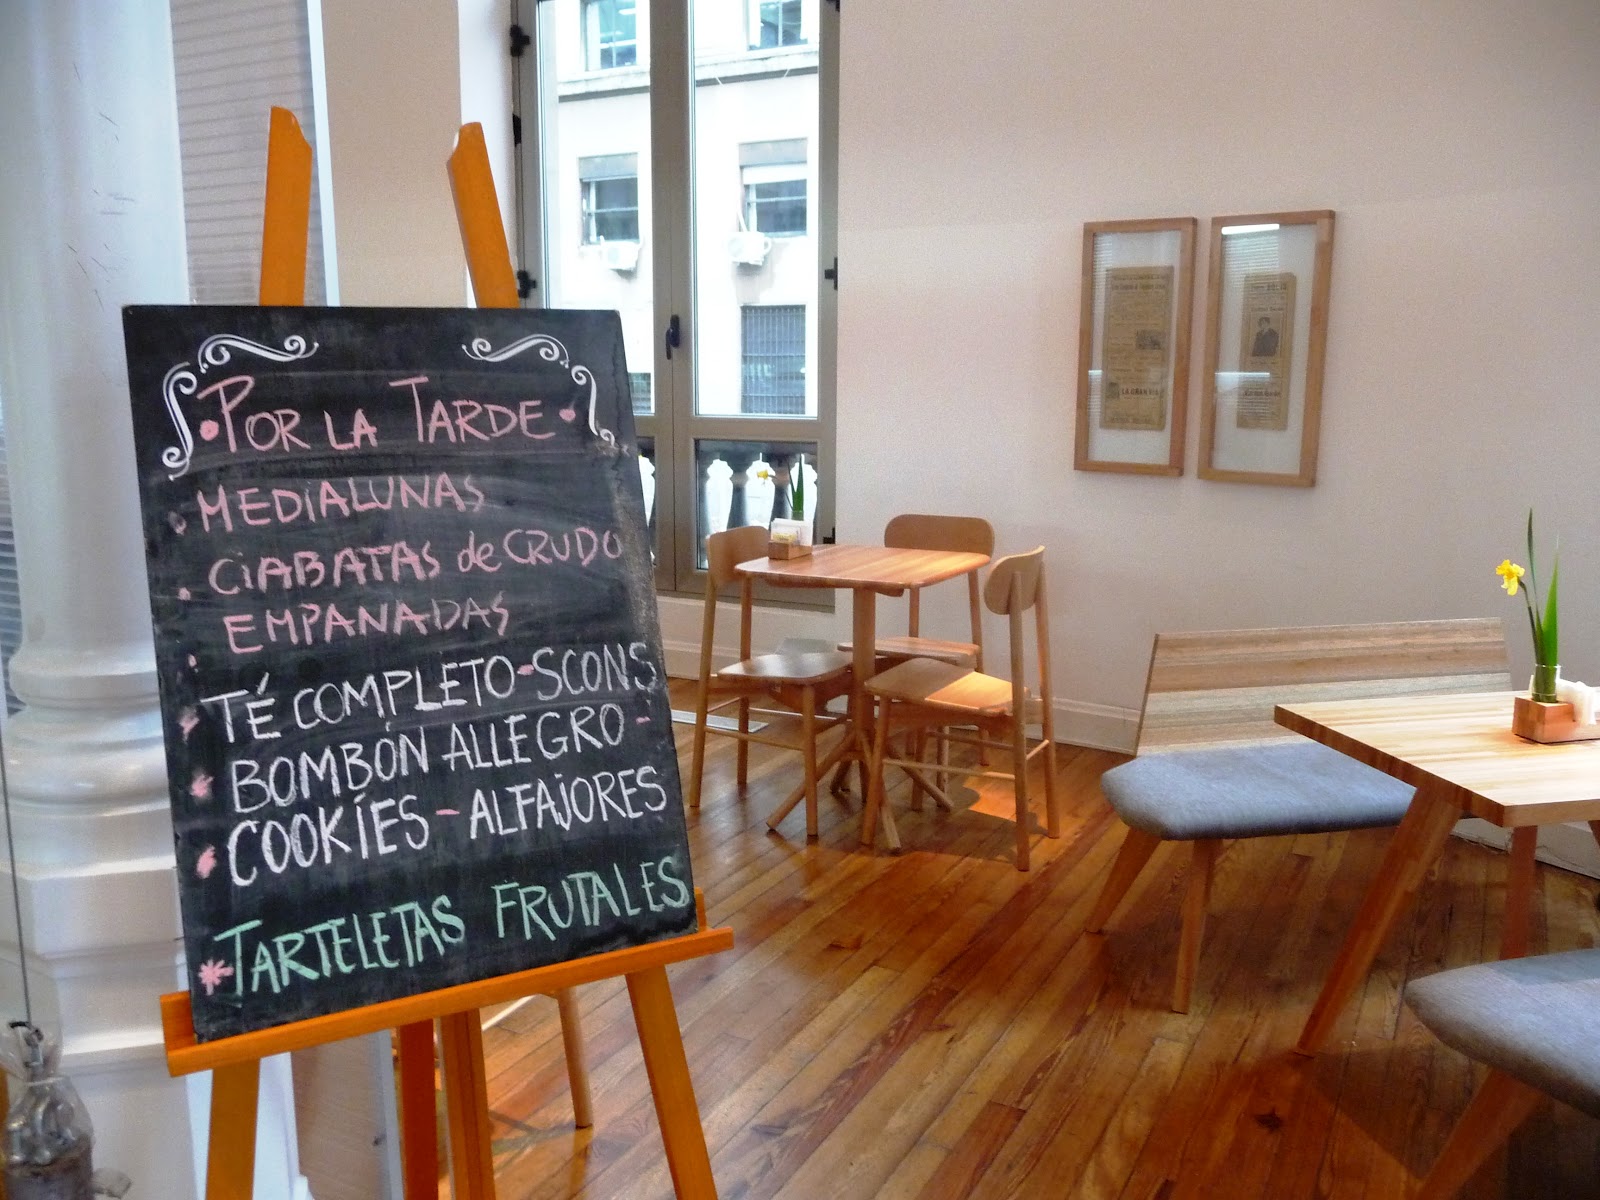 • POR LA TARDE •
• MEDIALUNAS
• CIABATAS de CRUDO
• EMPANADAS
* TÉ COMPLETO - SCONS
* BOMBÓN ALLEGRO -
* COOKÍES - ALFAJORES
* TARTELETAS FRUTALES
LA GRAN VIA